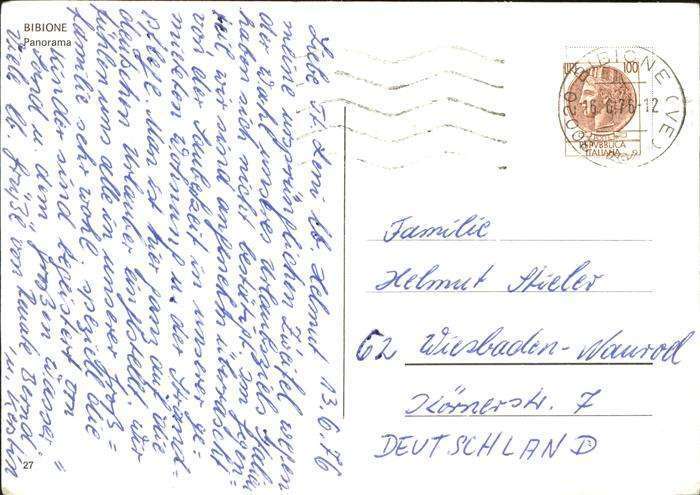 BIBIONE
Panorama
27
LIRE 100
REPVBBLICA
ITALIANA
30020 BIBIONE (VE)
16.6.76-12
Familie
Helmut Stieler
62 Wiesbaden-Naurod
Körnerstr. 7
DEUTSCHLAND
Liebe lb. Helmut 13.6.76
meine ursprünglichen Zweifel wegen
der Wahl unseres Urlaubsziels Italien
haben sich nicht bestätigt. Im Gegen=
teil wir sind angenehm überrascht
von der Sauberkeit in unserer ge=
mieteten Wohnung u. der Strand
pflege. Man ist hier ganz auf die
deutschen Urlauber eingestellt. Wir
fühlen uns alle in unserer Groß=
familie sehr wohl speziell die
Kinder sind begeistert am
Strand u. dem "großen Wasser."
Viele lb. Grüße von Bernd
u. Kerstin